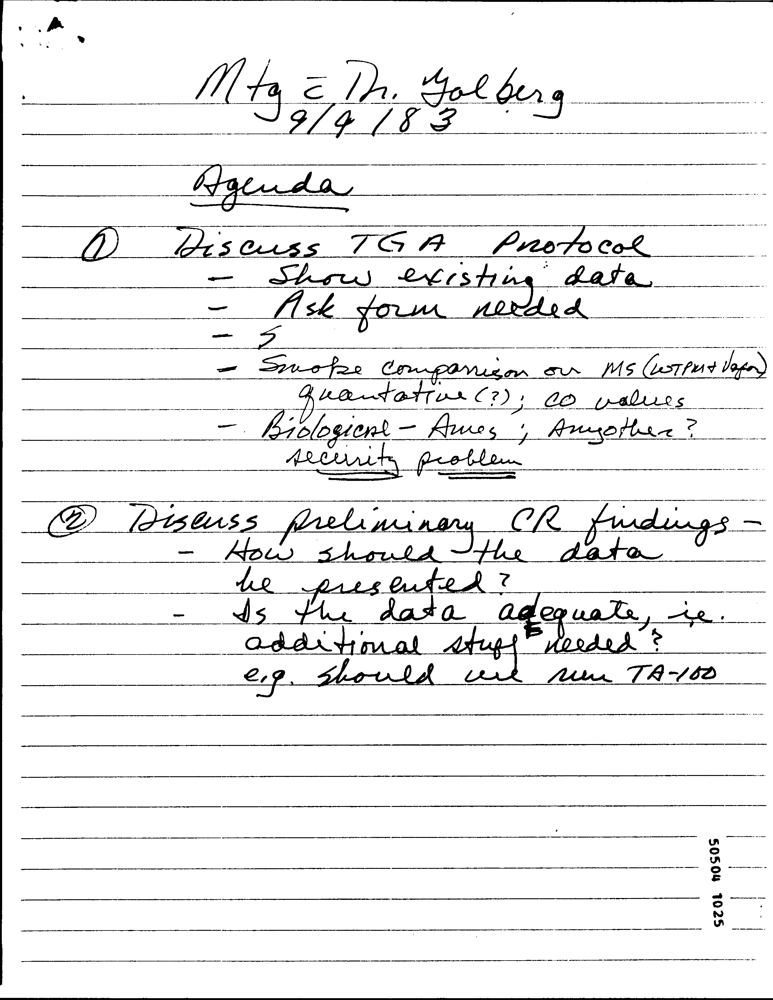 Mtg c̄ Dr. Golberg
9/9/83
Agenda
① Discuss TGA Protocol
- Show existing data
- Ask form needed
- S
- Smoke comparrison on MS (WTPM + Vapor)
quantative (?); CO values
- Biological - Ames; Anyother?
security problem
② Discuss preliminary CR findings -
- How should the data
be presented?
- Is the data adequate, ie.
additional stuff needed?
e.g. should we run TA-100
50504 1025